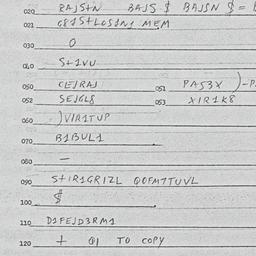 020 RAJS+N BAJS $ BAJSN $ =
021 G81S+LOS1N1 MEM
030 0
040 S+1VU
050 CEJRAJ 051 PAS3X )-P
052 SEJGL8 053 XIR1K8
060 )VIR1TUP
070 B1BUL1
080 —
090 S+IR1GRIZL QOFM7TUVL
100 $
110 D1FEJD3RM1
120 + Q1 TO COPY